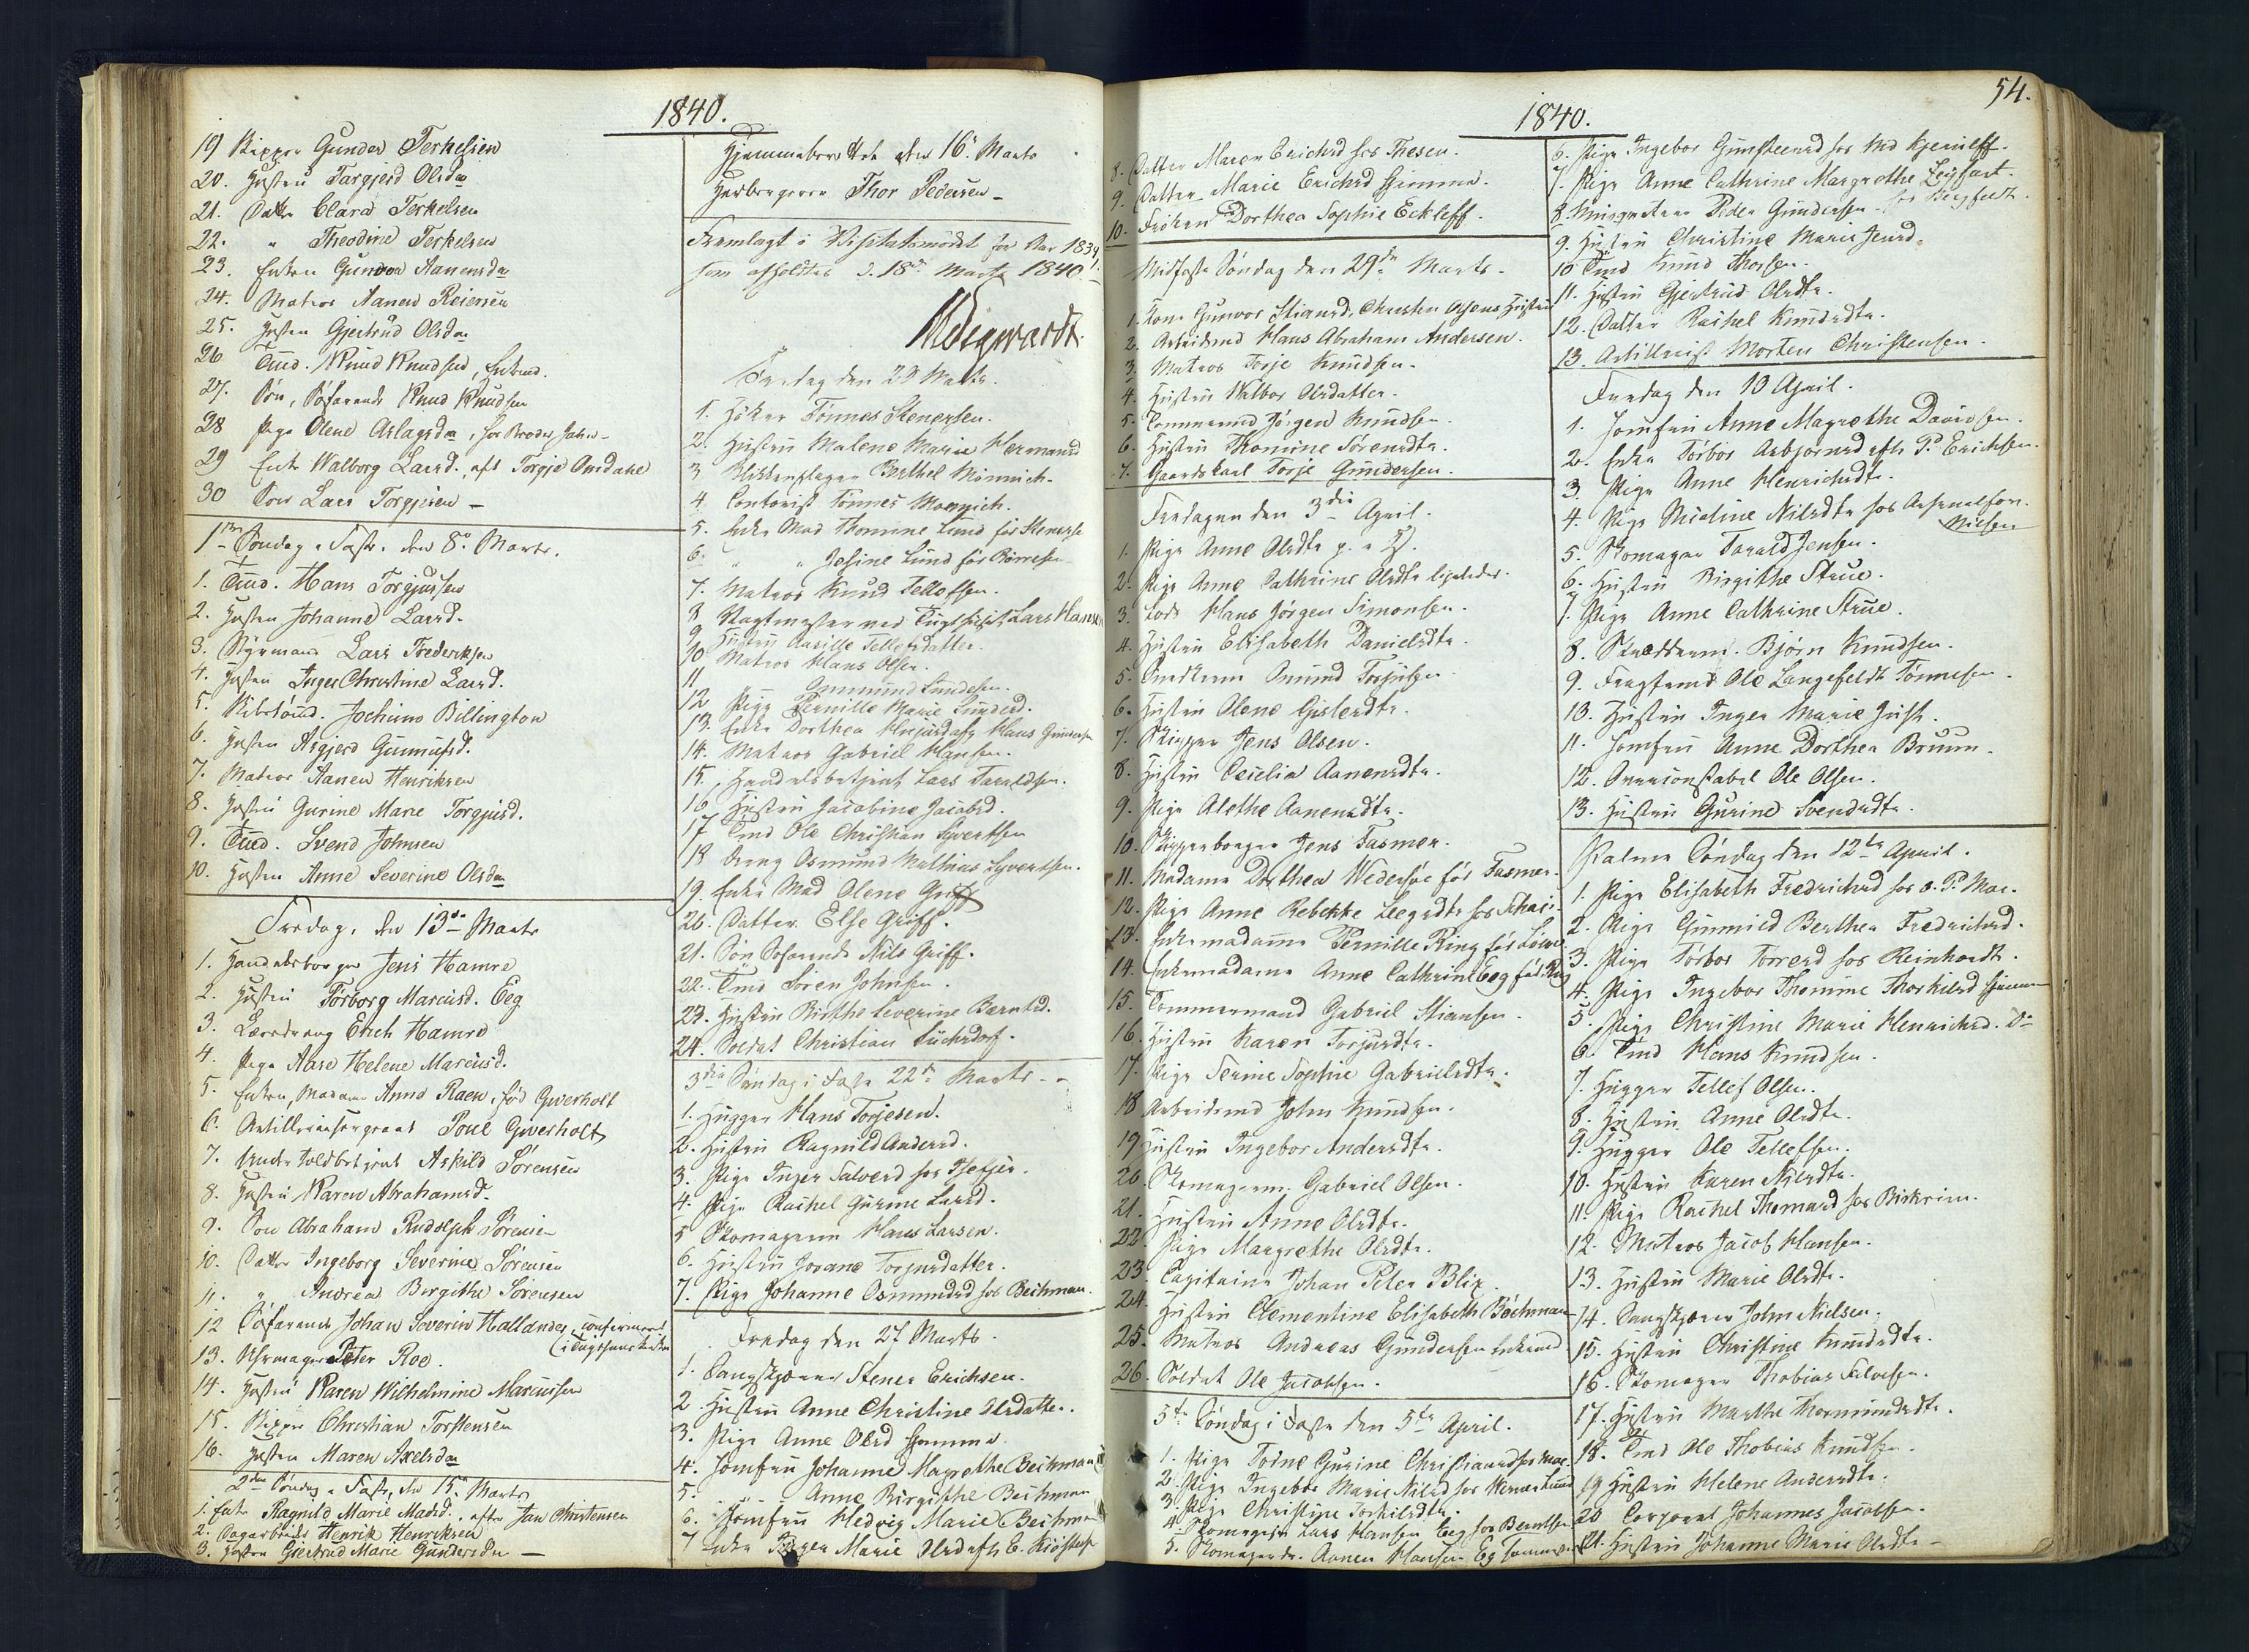 1840.
19 Skipper Gunder Terkelsen
20. Hustru Targjerd Olsdr
21. Datter Clara Terkelsen
22. " Theodine Terkelsen
23. Enken Gunvor Aanensdr
24. Matros Aanen Reiersen
25. Hustru Gjertrud Olsdr
26 Tmd. Knud Knudsen, Enkmd.
27. Søn, Søfarende Knud Knudsen
28 Pige Olene Aslagsdr, hos Broder John
29 Enke Walborg Larsd. aft Torgje Omdahl
30 Søn Lars Torgjesen
1ste Søndag i Faste, den 8de Marts.
1. Tmd. Hans Torgjussen
2. Hustru Johanne Larsd.
3. Styrmand Lars Frederiksen
4. Hustru Inger Christine Larsd.
5. Jochum Billington
6. Hustru Asgjerd Gunnufsd.
7. Matros Aanen Henriksen
8. Hustru Gurine Marie Torgjusd.
9. Tmd. Svend Johnsen
10. Hustru Anne Severine Olsdr
Fredag, den 13de Marts
1. Handelsborger Jens Hamre
2. Hustru Torborg Marcusd. Eeg
3. Læredreng Erich Hamre
4. Pige Aase Helene Marcusd.
5. Enken, Madame Anne Raen, fød Qwerholt
6. Artillerisergeant Poul Qwerholt
7. Under Toldbetjent Askild Sørensen
8. Hustru Karen Abrahamsd.
9. Søn Abraham Rudolph Sørensen
10. Datter Ingeborg Severine Sørensen
11. " Andrea Birgithe Sørensen
12 Søfarende Johan Severin Hallander, confirmeret
(i Tugthuuskirken
13. Uhrmager Peter Roe.
14. Hustru Karen Wilhelmine Marcussen
15. Skipper Christian Torstensen
16. Hustru Maren Axelsdr
2den Søndag i Faste, den 15de Marts
1. Enke Ragnild Marie Madsd., efter Jan Christensen
2. Dagarbeider Henrik Henriksen
3. Hustru Gjertrud Marie Gundersdr
Hjemmeberettet den 16de Marts
Herbergerer Thor Pedersen
Fremlagt i Visitatsmødet for Aar 1839
som afholdtes d. 18de Marts 1840.
Fredag den 20 Marts.
1. Høker Tønnes Stenersen.
2. Hustru Malene Marie Hermansd
3 Blikkenslager Berthel Mønnich.
4. Contorist Tønnes Mønnich.
5. Enke Mad Thomine Lund før Stenersen
6. " " Josine Lund før Børresen
7. Matros Knud Tellefsen.
8 Vagtmester ved Tugthuset Lars Hansen
9 Hustru Aasille Tellefsdatter.
10 Matros Hans Olsen.
11 Ommund Lundesen.
12 Pige Pernille Marie Lundesd.
13. Enke Dorthea Hans Gundersen
14. Matros Gabriel Hansen.
15. Handelsbetjent Lars Taraldsen.
16 Hustru Jacobine Jacobsd.
17 Tmd Ole Christian Syvertsen
18 Dreng Osmund Mathias Syvertsen.
19. Enke Mad Olene Griff
20. Datter Else Griff.
21. Søn Søfarende Nils Griff.
22. Tmd Søren Johnsen.
23. Hustru Birthe Severine Berntsd.
24. Soldat Christian Lüchsdorf.
3die Søndag i Faste 22de Marts.
1. Hugger Hans Torjesen.
2. Hustru Ragnild Andersd.
3. Pige Inger Salvesd hos
4. Pige Rachel Gurine Larsd.
5 Skomagerm Hans Larsen.
6. Hustru Jorane Torjusdatter.
7. Pige Johanne Osmundsd hos Beichman.
Fredag den 27 Marts.
1. Baugskjærer Stener Erichsen.
2. Hustru Anne Christine Olsdatter.
3. Pige Anne Olsd hjemme
4. Jomfru Johanne Magrethe Beichman
5. Anne Birgithe Beichman
6. Jomfru Hedvig Marie Beichman
7 Enke Inger Marie Olsd efter E.
1840.
54.
8. Datter Maren Erichsd hos Thesen.
9. Datter Marie Erichsd hjemme.
10. Frøken Dorthea Sophie Eckleff.
Midfaste Søndag den 29de Marts.
1. Kone Gunvor Stiansd. Christen Olsens Hustru
2. Arbeidsmd Hans Abraham Andersen.
3. Matros Torje Knudsen.
4. Hustru Valbor Olsdatter.
5. Tømmermd Jørgen Knudsen.
6. Hustru Thomine Sørensdtr.
7. Gaardskarl Torje Gundersen.
Fredagen den 3die April.
1. Pige Anne Olsdtr
2. Pige Anne Cathrine Olsdtr ligeledes.
3. Lods Hans Jørgen Simonsen.
4. Hustru Elisabeth Danielsdtr.
5. Snedkerm Omund Torjusen.
6. Hustru Olene Gislesdtr.
7. Skipper Jens Olsen.
8. Hustru Cecilia Aanensdtr.
9. Pige Alethe Aanensdtr.
10. Skipperborger Jens Fasmer.
11. Madame Dorthea Wedersøe før Fasmer.
12. Pige Anne Rebekke Leegsdtr hos
13. Enkemadame Pernille Ring før
14. Enkemadame Anne Cathrine Eeg fød Ring
15. Tømmermand Gabriel Stiansen.
16. Hustru Karen Torjusdtr.
17. Pige Serine Sophie Gabrielsdtr.
18 Arbeidsmd John Knudsen.
19 Hustru Ingebor Andersdtr.
20. Skomagerm. Gabriel Olsen.
21. Hustru Anne Olsdtr.
22. Pige Margrethe Olsdtr.
23. Capitaine Johan Peter Blix.
24. Hustru Clementine Elisabeth Bøchman
25. Matros Andreas Gundersen Enkemd
26. Soldat Ole Jacobsen.
5te Søndag i Faste den 5te April.
1. Pige Torine Gurine Christiansd hos
2. Pige Ingebor Marie Nilsd hos Werner Lund
3. Pige Christine Torkilsdtr.
4. Skomagersv Lars Hansen Eeg hos Berntsen
5. Skomagerdr. Aanen Hansen Eg
6. Pige Ingebor Gunsteensd hos Md Kjerulff.
7. Pige Anne Cathrine Margrethe Legfart.
8. Peder Gundersen
9. Hustru Christine Marie Jensd.
10 Tmd Knud Thorsen.
11. Hustru Gjertrud Olsdtr.
12. Datter Rachel Knudsdtr.
13. Artillerist Morten Christensen.
Fredag den 10 April.
1. Jomfru Anne Magrethe Davidsen.
2. Enke Torbor Asbjørnsd efter P. Erichsen.
3. Pige Anne Henrichsdtr.
4. Pige Nilsdtr hos Arsenalforv.
Nielsen
5. Skomager Tarald Jensen.
6. Hustru Birgithe Strue.
7. Pige Anne Cathrine Strue.
8. Skrædderm. Bjørn Knudsen.
9. Fragtemd Ole Langefeldt Tønnesen.
10. Hustru Inger Marie Just.
11. Jomfru Anne Dorthea Bruun.
12. Overconstabel Ole Olsen.
13. Hustru Gurine Svendsdtr.
Palme Søndag den 12te April.
1. Pige Elisabeth Fredrichsd hos
2. Pige Gunnild Berthea Fredrichsd.
3. Pige Torbor Torresd hos Reinhardt.
4. Pige Ingebor Thomine Thorkilsd hjemme
5. Pige Christine Marie Henrichsd. do
6. Tmd Hans Knudsen.
7. Hugger Tellef Olsen.
8. Hustru Anne Olsdtr.
9. Hugger Ole Tellefsen.
10. Hustru Karen Nilsdtr.
11. Pige Rachel Thomasd hos Birkrim.
12. Matros Jacob Hansen.
13. Hustru Marie Olsdtr.
14. Baugskjærer John Nielsen.
15. Hustru Christine Knudsdtr.
16. Skomager Thobias Salvesen.
17. Hustru Marthe Thormundsdtr.
18. Tmd Ole Thobias Knudsen.
19 Hustru Helene Andersdtr.
20 Corporal Johannes Jacobsen.
21. Hustru Johanne Marie Olsdtr